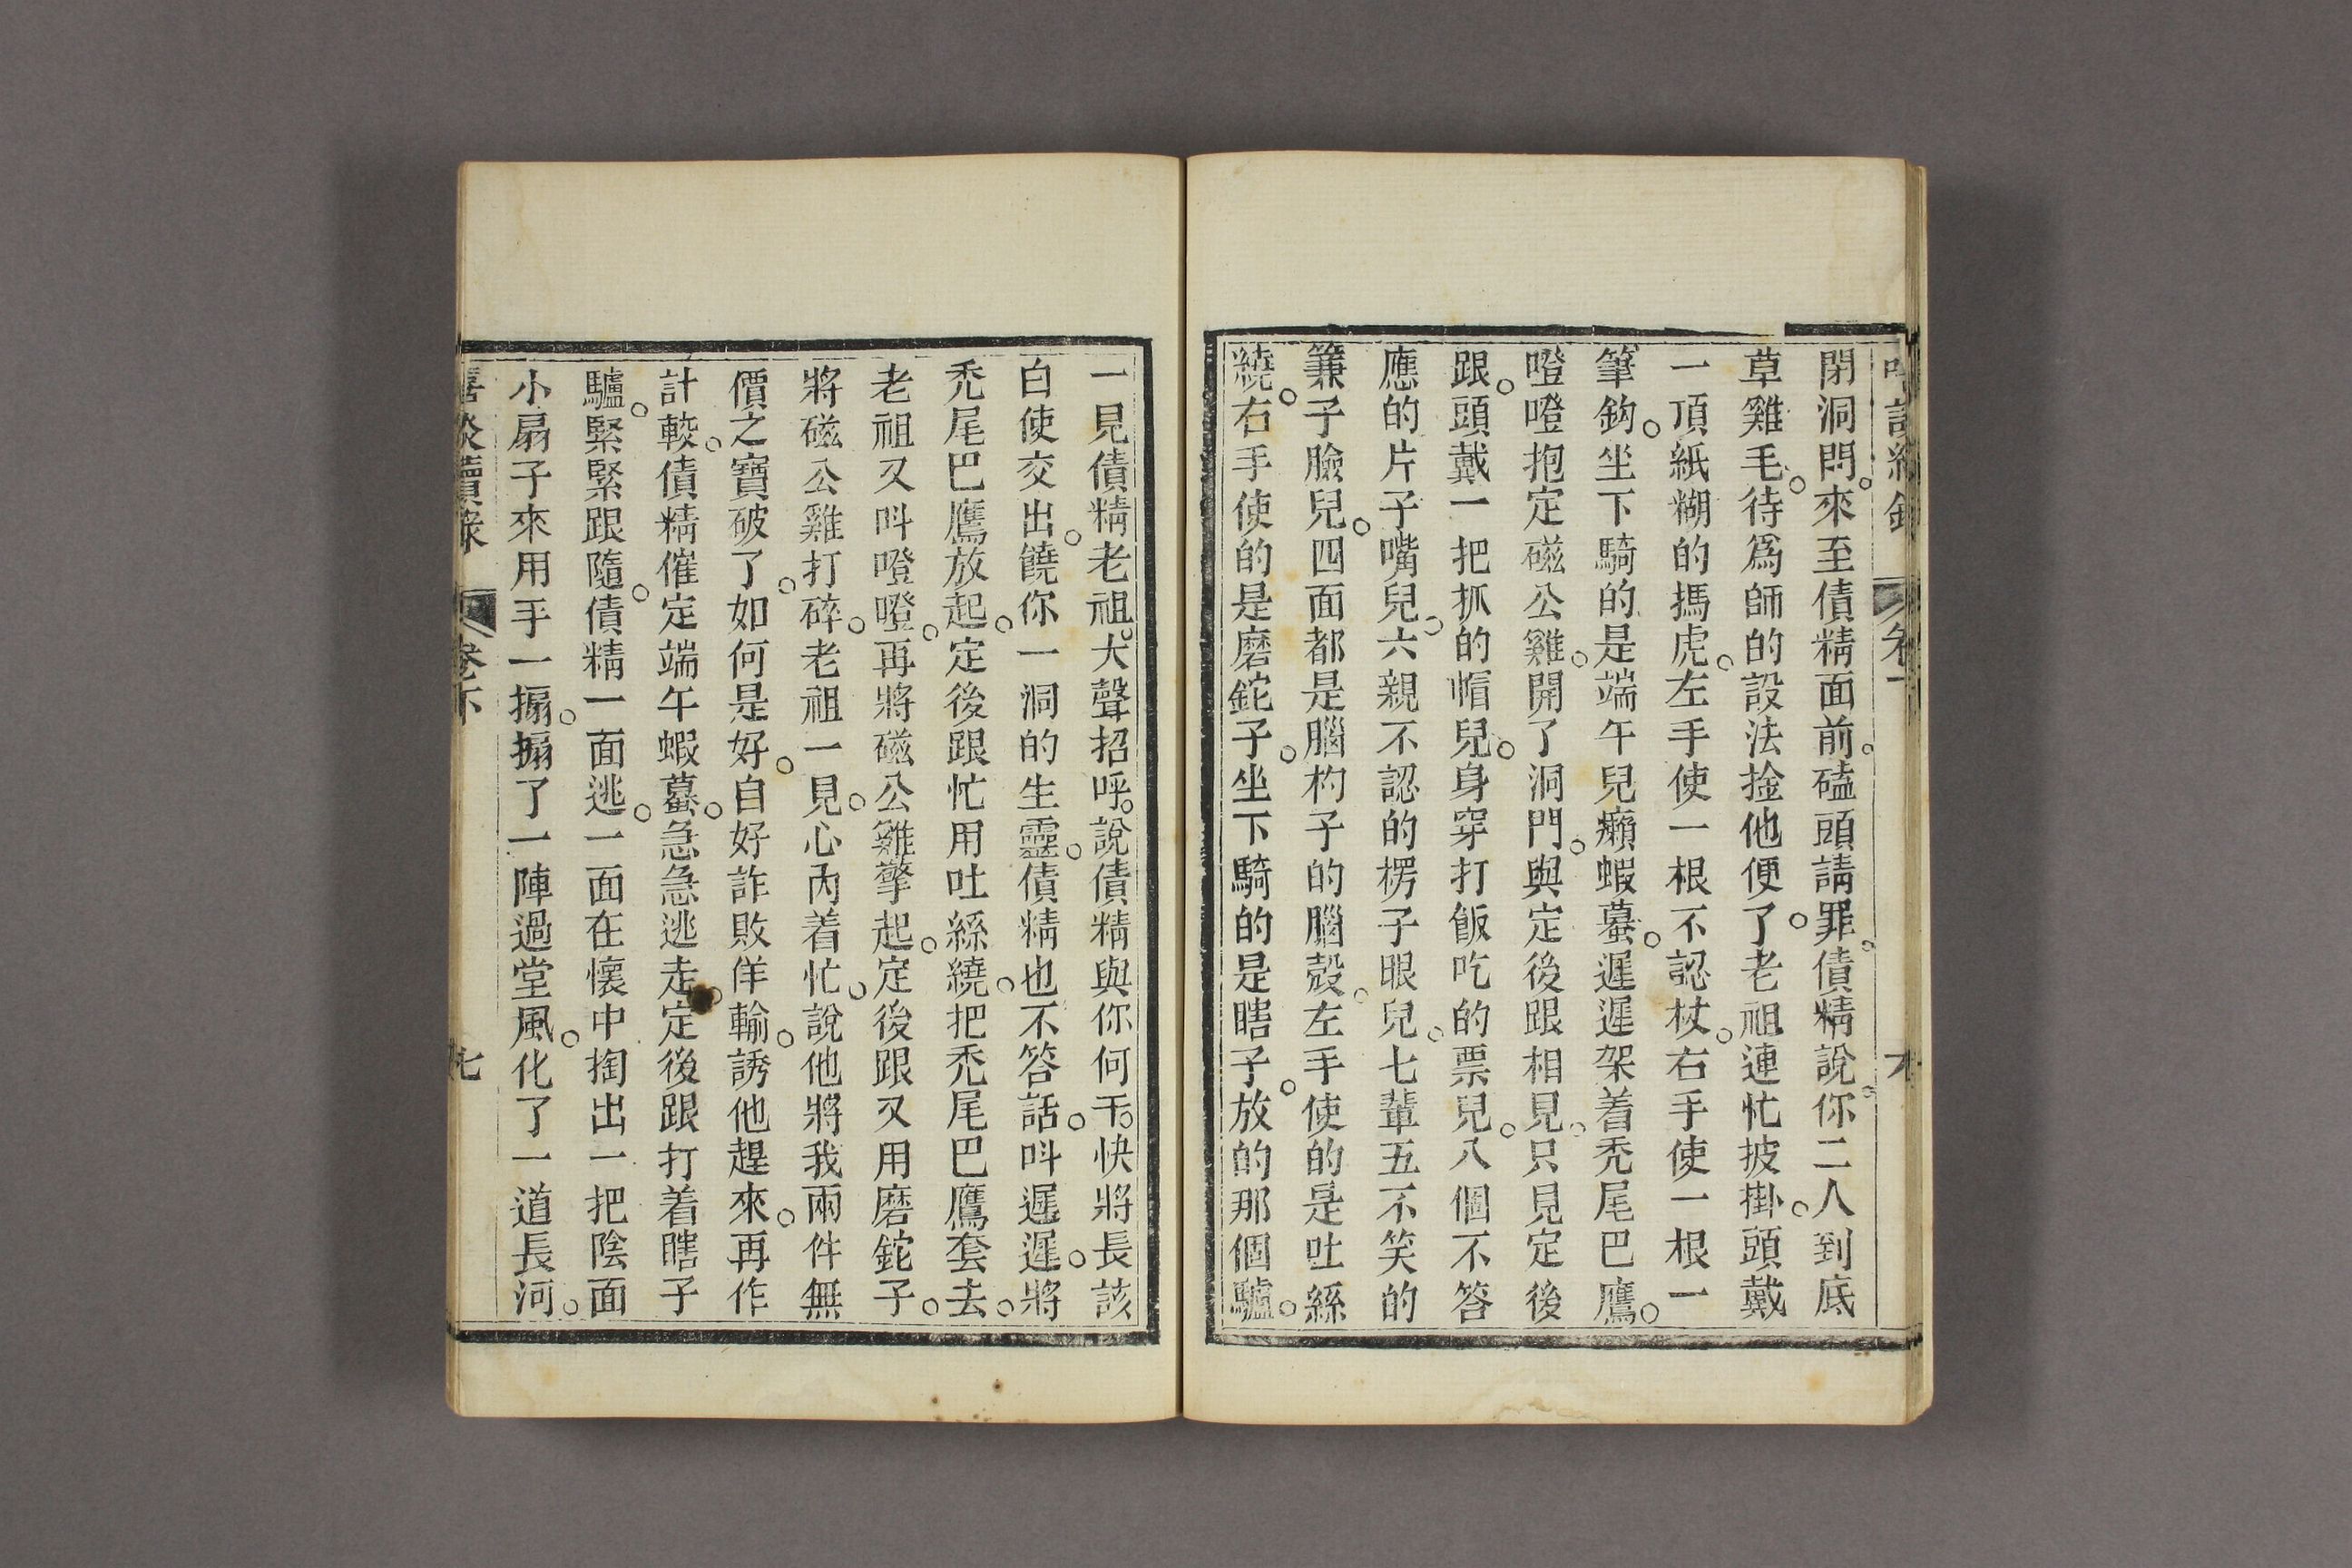 閉洞門。來至債精面前。磕頭請罪。債精說。你二人到底
草雞毛。待爲師的設法捦他便了。老祖連忙披掛。頭戴
一頂紙糊的搗虎。左手使一根不認杖。右手使一根一
筆鈎。坐下騎的是端午兒癩蝦蟇。遲遲架着禿尾巴鷹。
噔噔抱定磁公雞。開了洞門。與定後跟相見。只見定後
跟。頭戴一把抓的帽兒。身穿打飯吃的票兒。八個不答
應的片子嘴兒。六親不認的楞子眼兒。七輩五不笑的
簾子臉兒。四面都是腦杓子的腦殼。左手使的是吐絲
繞。右手使的是磨鉈子。坐下騎的是瞎子。放的那個驢。
一見債精老祖。大聲招呼。說債精與你何干。快將長該
白使交出。饒你一洞的生靈。債精也不答話。呌遲遲。將
禿尾巴鷹放起。定後跟忙用吐絲繞。把禿尾巴鷹套去。
老祖又呌噔噔。再將磁公雞擎起。定後跟又用磨鉈子。
將磁公雞打碎。老祖一見。心內着忙。說他將我兩件無
價之寶破了。如何是好。自好詐敗佯輸。誘他趕來。再作
計較。債精催定端午蝦蟇。急急逃走。定後跟打着瞎子
驢。緊緊跟隨。債精一面逃。一面在懷中掏出一把陰面
小扇子來用手一搧。搧了一陣過堂風。化了一道長河。
喜談續錄 卷下 七